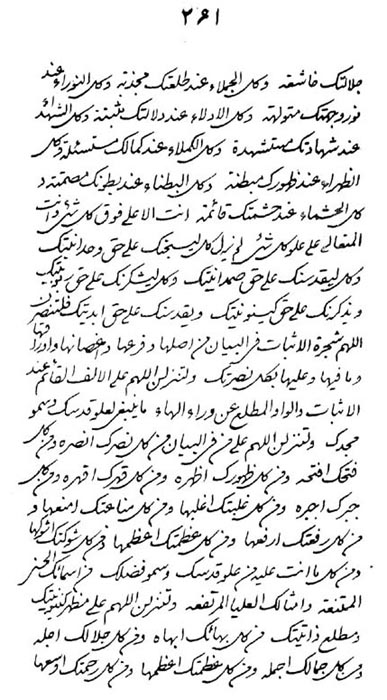 ٢٦١
جلالتك خاشعة وكل الجملاء عند طلعتك مجذبة وكل النوراء عند
نور وجهتك متولهة وكل الادلاء عند دلالتك مثبتة وكل الشهداء
عند شهادتك مستشهدة وكل الكملاء عند كمالك وكل
الظهراء عند ظهورك وكل البطناء عند بطونك مصمتة و
كل الحشماء عند حشمتك قائمة انت الاعلى فوق كل شئ وانت
المتعالى على علو كل شئ لم يزل كل ليسبحنك على حق وحدانيتك
وكل ليقدسنك على حق صمدانيتك وكل ليشكرنك على حق
و يذكرنك على حق كينونيتك و يقدسنك على حق ابديتك فلتنصرن
اللهم شجرة الاثبات فى البيان من اصلها وفرعها واغصانها واوراقها
وما فيها وعليها بكل نصرتك ولتنزلن اللهم على الالف القائم عند
الاثبات والواو المطلع عن وراء الهاء ما ينبغى لعلو قدسك وسمو
مجدك ولتنزلن اللهم على من فى البيان من كل نصرك انصره ومن كل
فتحك افتحه ومن كل ظهورك اظهره ومن كل قهرك اقهره ومن كل
جبرك اجبره ومن كل غلبتك اغلبها ومن كل مناعتك امنعها و
من كل رفعتك ارفعها ومن كل عظمتك اعظمها ومن كل شوكتك اشوكها
ومن كل ما انت عليه من علو قدسك وسمو فضلك من اسمائك الحسنى
الممتنعة وامثالك العليا المرتفعة ولتنزلن اللهم على مظهر كينونيتك
ومطلع ذاتيتك من كل بهائك ابهاه ومن كل جلالك اجله
ومن كل جمالك اجمله ومن كل عظمتك اعظمها ومن كل رحمتك اوسعها